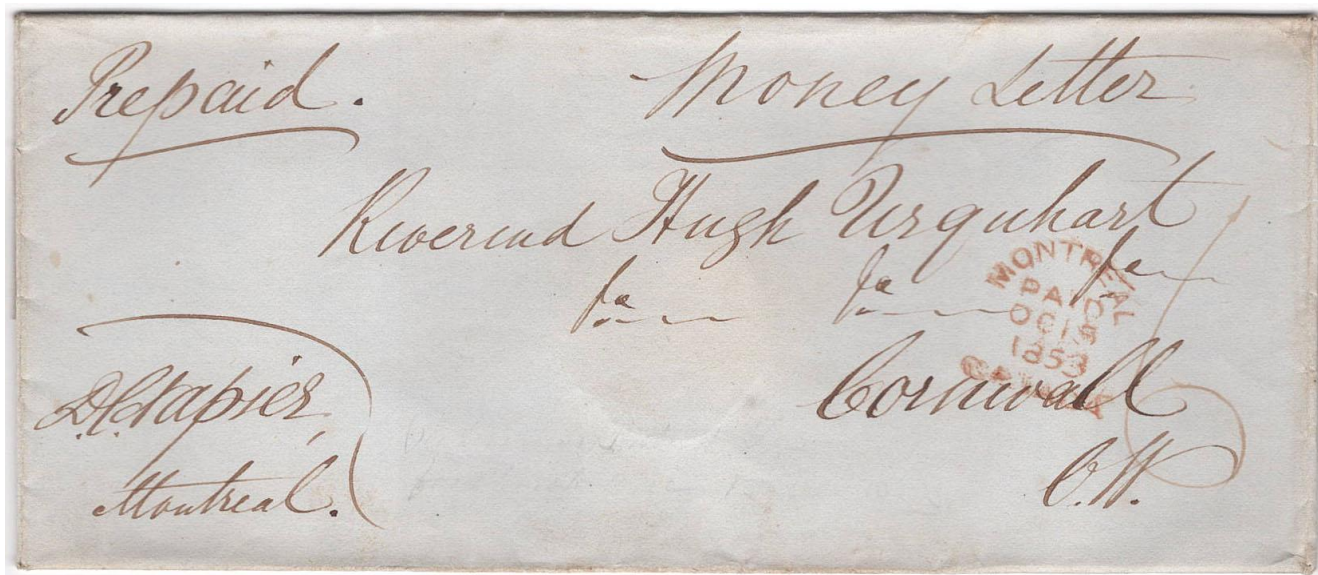 Prepaid.
Money Letter
Reverend Hugh Urquhart
&c &c &c
MONTREAL
PAID
OC 19
1853
CANADA
Cornwall
C.W.
D.C. Napier,
Montreal.